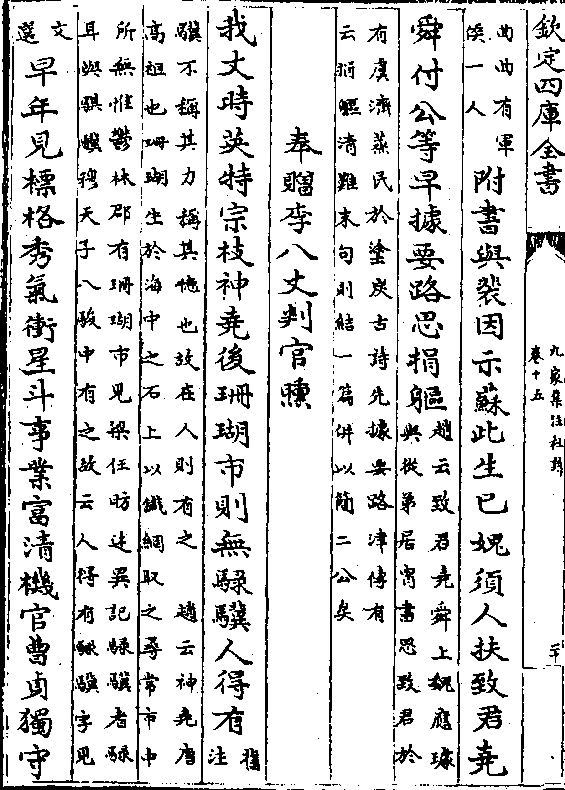 欽定四庫全書
九家集注杜詩
卷十五
二十
曲曲有軍
候一人
附書與裴因示蘇此生已媿須人扶致君堯
舜付公等早據要路思捐軀
趙云致君堯舜上魏應璩
與從弟君胄書思致君於
有虞濟蒸民於塗炭古詩先據要路津傳有
云捐軀濟難末句則結一篇併以簡二公矣
奉贈李八丈判官曛
我丈時英特宗枝神堯後珊瑚市則無騄驥人得有
舊
注
驥不稱其力稱其德也故在人則有之 趙云神堯唐
高祖也珊瑚生於海中之石上以鐵網取之尋常市中
所無惟鬱林郡有珊瑚市見梁任昉述異記騄驥者騄
耳與騏驥穆天子八駿中有之故云人得有騄驥字見
文
選
早年見標格秀氣衝星斗事業富清機官曹貞獨守